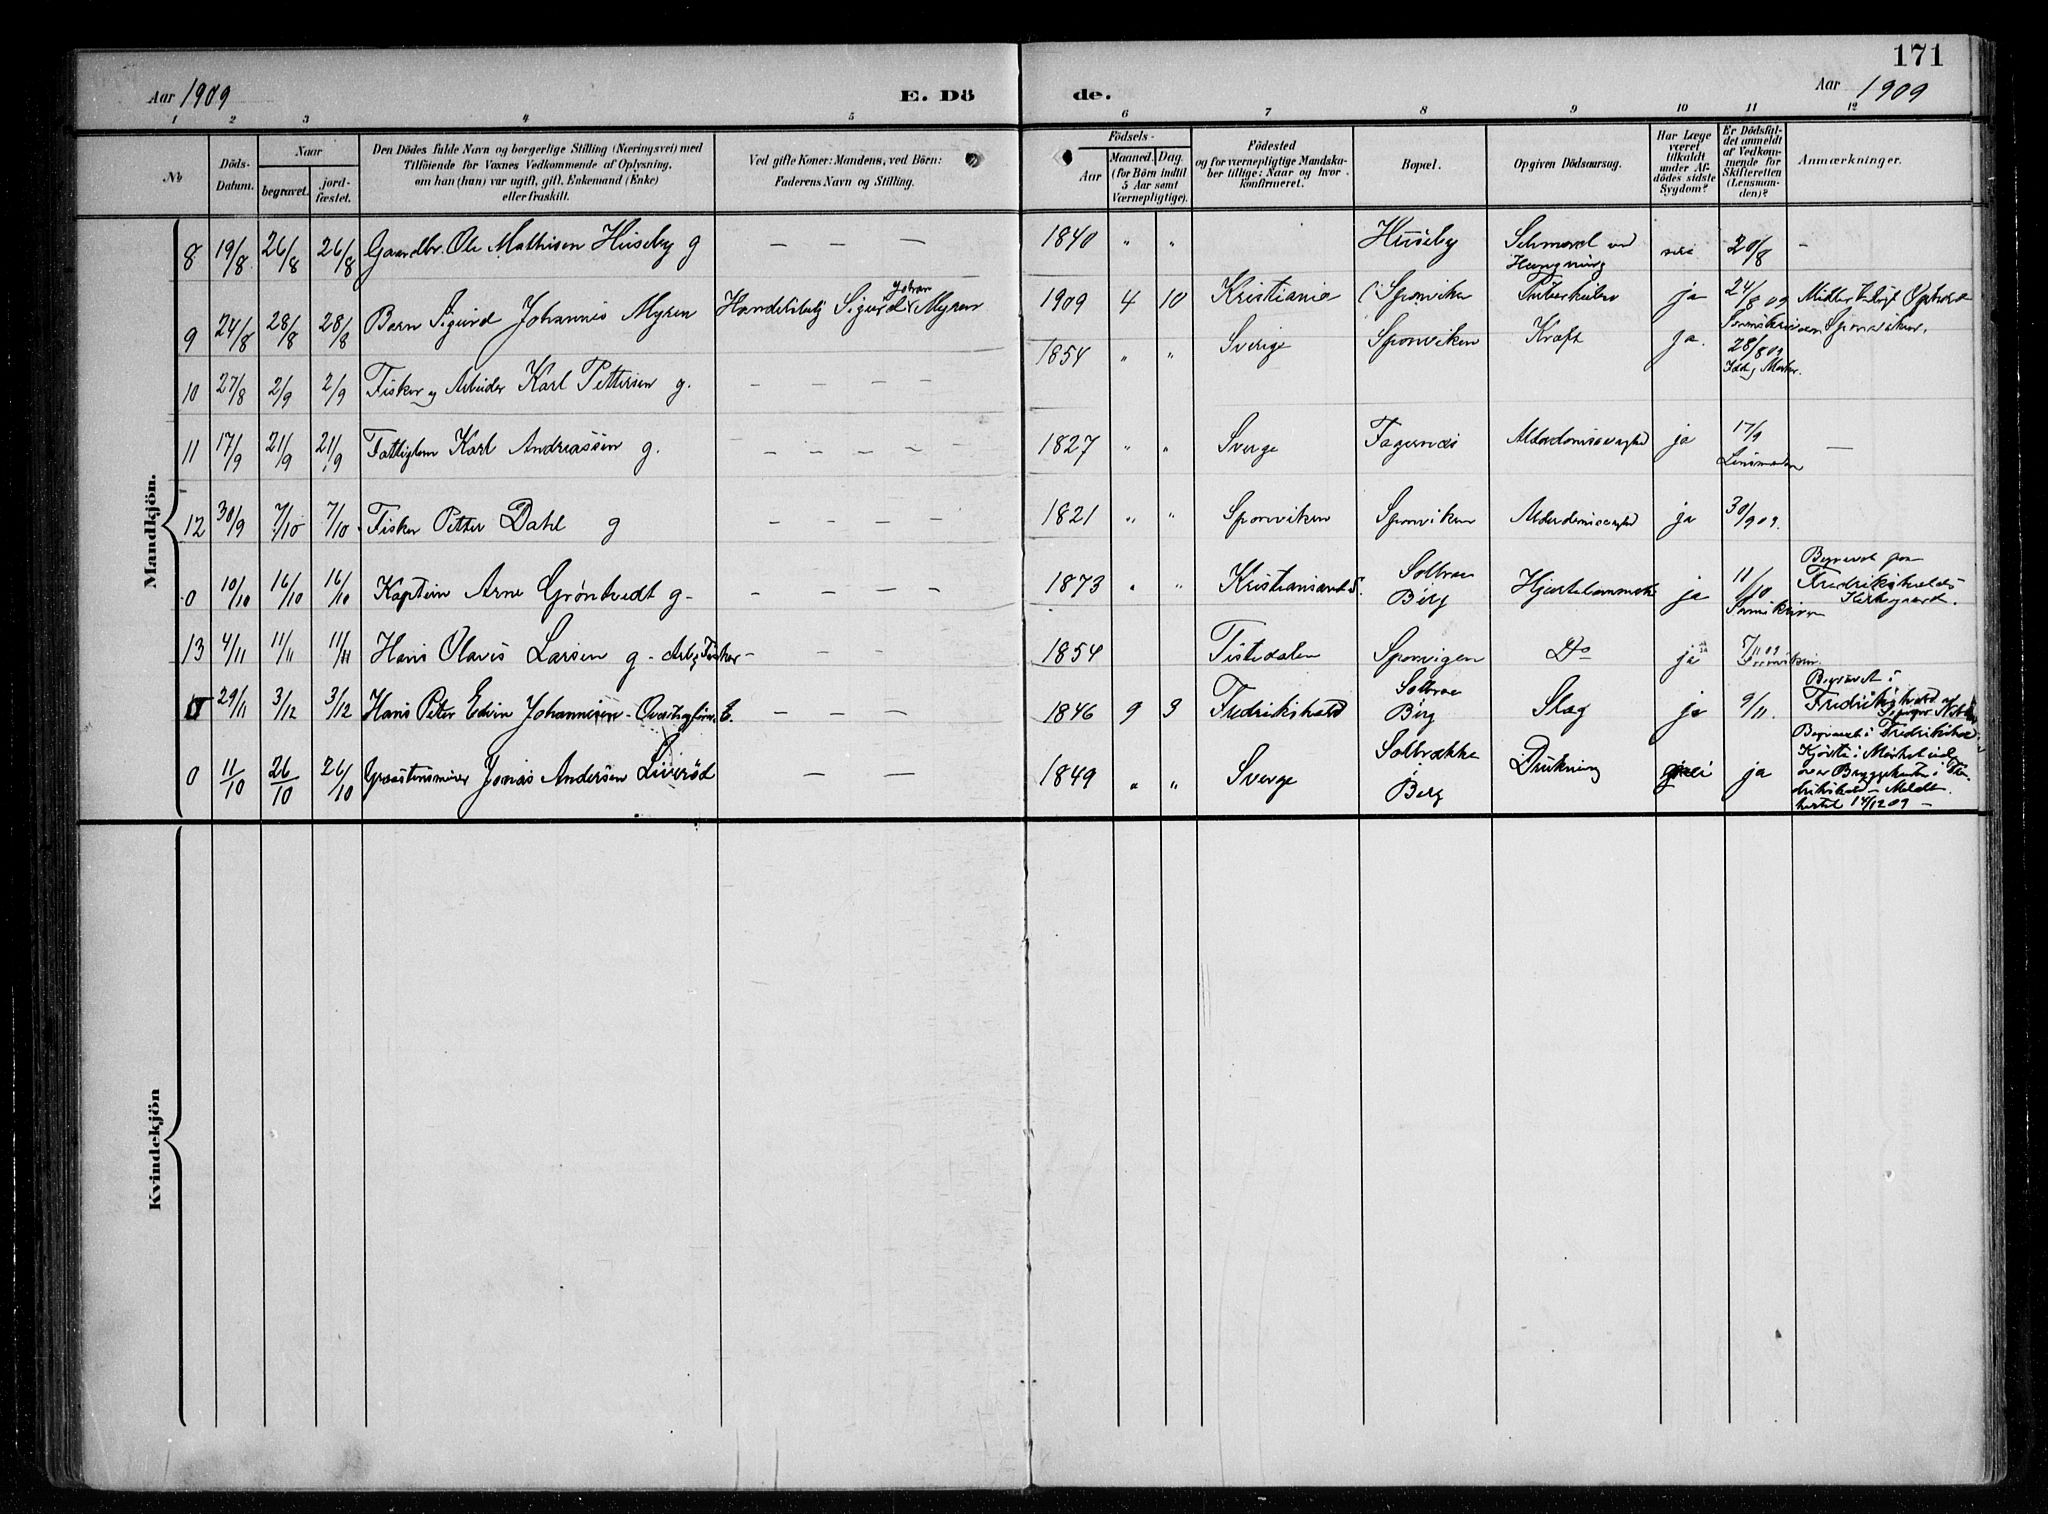 171
Aar 1909
E. Dö
de.
Aar 1909
1 2 3 4 5 6 7 8 9 10 11 12
No
Döds-Datum.
Naar
begravet.
jord-fæstet.
Den Dödes fulde Navn og borgerlige Stilling (Næringsvei) med
Tilföiende for Voxnes Vedkommende af Oplysning,
om han (hun) var ugift, gift, Enkemand (Enke)
eller fraskilt.
Ved gifte Koner: Mandens, ved Börn:
Faderens Navn og Stilling.
Födsels-
Aar
Maaned. Dag.
(for Börn indtil
5 Aar samt
Værnepligtige).
Födested
og for værnepligtige Mandska-
ber tillige: Naar og hvor
konfirmeret.
Bopæl.
Opgiven Dödsaarsag.
Har Læge
været
tilkaldt
under Af-
dødes sidste
Sygdom?
Er Dödsfal-
det anmeldt
af Vedkom-
mende for
Skifteretten
(Lensman-
den)?
Anmærkninger.
Mandkjön.
8 19/8 26/8 26/8 Gaardbr. Ole Mathisen Huseby g — — — 1840 " " Huseby Selvmord ved Hængning nei 20/8 —
9 24/8 28/8 28/8 Barn Sigurd Johannes Myren Sigurd Johan Myren 1909 4 10 Kristiania Sponviken Tuberkulose ja 24/8 09 Sorenskriveren Midlertidigt Ophold Sponviken.
10 27/8 2/9 2/9 Fisker og Arbeider Karl Pettersen g. — — — — 1854 " " Sverige Sponviken Kræft ja. 28/8 09 Idd og Marker.
11 17/9 21/9 21/9 Fattiglem Karl Andreassen g. — — — — 1827 " " Sverge Fagernæs Alderdomssvaghed ja 17/9 Lensmanden —
12 30/9 7/10 7/10 Fisker Petter Dahl g — — — — 1821 " " Sponviken Sponviken Alderdomssvaghed ja 30/9 09.
0 10/10 16/10 16/10 Kaptein Arne Gröntvedt g — — — — 1873 " " Kristiansand S. Solbrae Berg Hjertelammelse ja 11/10 Sorenskriver Begravet paa Fredrikshalds Kirkegaard.
13 4/11 11/11 11/11 Hans Olavis Larsen g — Arb. Fisker — 1854 Tistedalen Sponvigen Do ja 7/11 09
0 29/11 3/12 3/12 Hans Peter Edvin Johannesen — E. — — — 1846 9 9 Fredrikshald Solbrae Berg Slag ja 9/11. Begravet i Fredrikshald af
0 11/10 26/10 26/10 Graastensminer Jonas Andersen Liveröd — — 1849 " " Sverge Solbrække Berg Drukning nei ja Begravet i Fredrikshald Kjörte i Mörket ud over Bryggekanten i Fredrikshald — Meldt 14/12 09 —
Kvindekjön